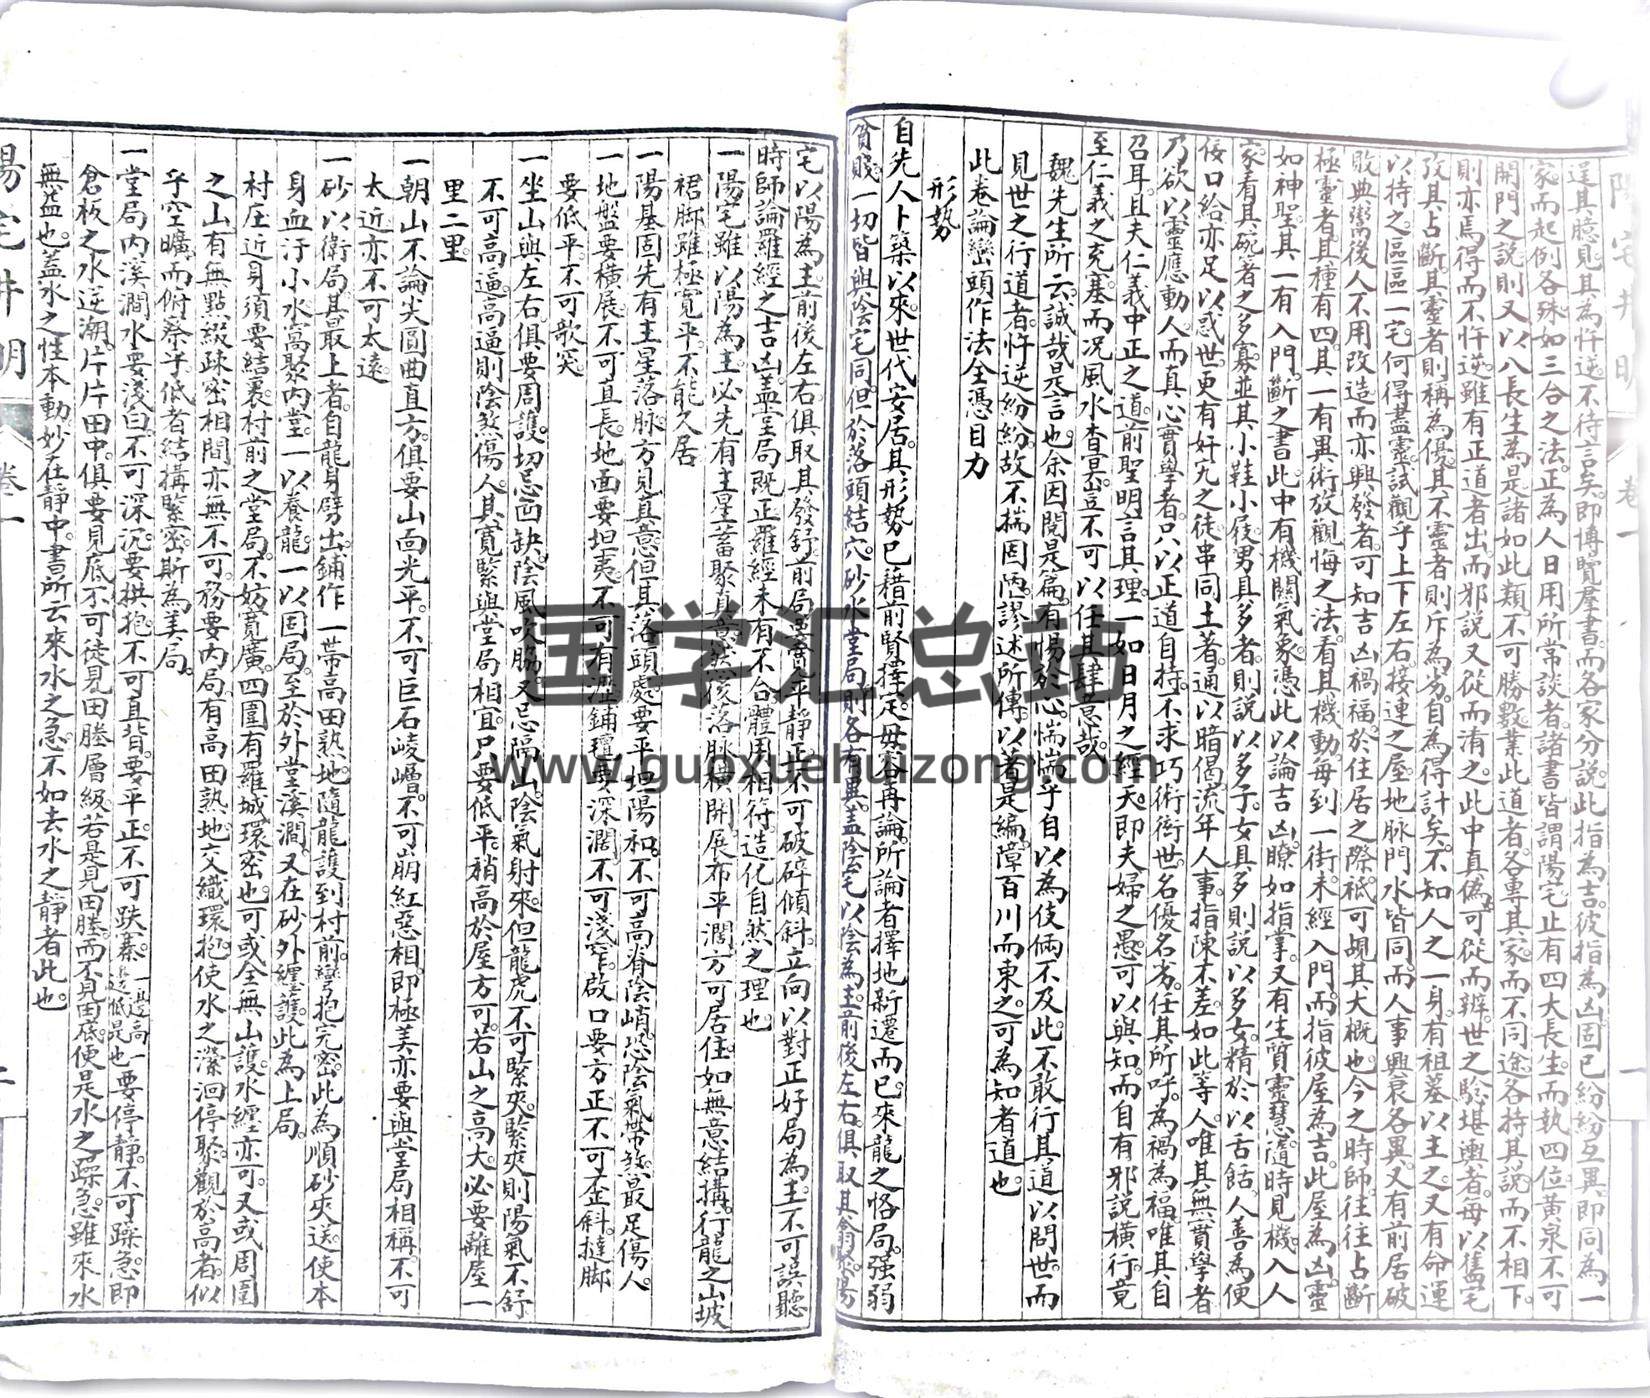 陽宅井明
卷一
一
逞其臆見其為忤逆不待言矣即博覽羣書而各家分說此指為吉彼指為凶固已紛紛互異即同為一
家而起例各殊如三合之法正為人日用所常談者諸書皆謂陽宅止有四大長生而執四位黃泉不可
開門之說則又以八長生為是諸如此類不可勝數業此道者各專其家而不同途各持其說而不相下
則亦焉得而不忤逆雖有正道者出而邪說又從而淆之此中真偽可從而辨世之駘堪輿者毋以舊宅
攷其占斷其靈者則稱為優其不靈者則斥為劣自為得計矣不知人之一身有祖墓以主之又有命運
以持之區區一宅何得盡靈試觀乎上下左右接連之屋地脉門水皆同而人事興衰各異又有前居破
敗典鬻後人不用改造而亦興發者可知吉凶禍福於住居之際祗可覘其大概也今之時師往往占斷
極靈者其種有四其一有異術放觀悔之法看其機動每到一街未經入門而指彼屋為吉此屋為凶靈
如神聖其一有入門斷之書此中有機關氣象憑此以論吉凶瞭如指掌又有生質靈慧隨時見機入人
家看其碗者之多寡並其小鞋小屐男具多者則說以多子女具多則說以多女精於以舌餂人善為便
佞口給亦足以惑世更有奸宄之徒串同土著通以暗偈流年人事指陳不差如此等人唯其無實學者
乃欲以靈應動人而真心實學者只以正道自持不求巧術衒世名優名劣任其所呼為禍為福唯其自
召耳且夫仁義中正之道前聖明言其理一如日月之經天即夫婦之愚可以與知而自有邪說橫行竟
至仁義之充塞而况風水杳㝠豈不可以任其肆意哉
魏先生所云誠哉是言也余因閱是篇有惕於心惴惴乎自以為伎倆不及此不敢行其道以問世而
見世之行道者忤逆紛紛故不揣固陋謬述所傳以著是編障百川而東之可為知者道也
此卷論巒頭作法全憑目力
形勢
自先人卜築以來世代安居其形勢已藉前賢擇定毋容再論所論者擇地新遷而已來龍之恪局強弱
貧賤一切皆與陰宅同但於落頭結穴砂水堂局則各有異蓋陰宅以陰為主前後左右俱取其翕聚陽
宅以陽為主前後左右俱取其發舒前局要寬平靜正不可破碎傾斜立向以對正好局為主不可誤聽
時師論羅經之吉凶蓋堂局既正羅經未有不合體用相符造化自然之理也
一陽宅雖以陽為主必先有主星蓄聚真意然後落脉橫開展布平濶方可居住如無意結搆行龍之山坡
裙脚雖極寬平不能久居
一陽基固先有主星落脉方見真意但其落頭處要平坦陽和不可高脊陰峭恐陰氣帶煞最足傷人
一地盤要橫展不可直長地面要坦夷不可有濕鋪瓊要深濶不可淺窄啟口要方正不可歪斜撻脚
要低平不可欹突
一坐山與左右俱要周護切忌凹缺陰風吹脇又忌隔山陰氣射來但龍虎不可緊夾緊夾則陽氣不舒
不可高逼高逼則陰煞傷人其寬緊與堂局相宜只要低平稍高於屋方可若山之高大必要離屋一
里二里
一朝山不論尖圓曲直方俱要山面光平不可巨石崚嶒不可崩紅惡相即極美亦要與堂局相稱不可
太近亦不可太遠
一砂以衛局其最上者自龍身劈出鋪作一帶高田熟地隨龍護到村前彎抱完密此為順砂夾送使本
身血汙小水窩聚內堂一以養龍一以固局至於外堂溪澗又在砂外纏護此為上局
村庄近身須要結裹村前之堂局不妨寬廣四圍有羅城環密也可或全無山護水纏亦可又或周圍
之山有無點綴疎密相間亦無不可務要內局有高田熟地交織環抱使水之瀠洄停聚觀於高者似
乎空曠而俯察乎低者結搆緊密斯為美局
一堂局內溪澗水要淺白不可深沉要拱抱不可直背要平正不可跌寨一邊高一邊低是也要停靜不可躁急即
倉板之水逆潮片片田中俱要見底不可徒見田塍層級若是見田塍而不見田底便是水之躁急雖來水
無益也蓋水之性本動妙在靜中書所云來水之急不如去水之靜者此也
陽宅井明
卷一
二
国学汇总站
www.guoxuehuizong.com